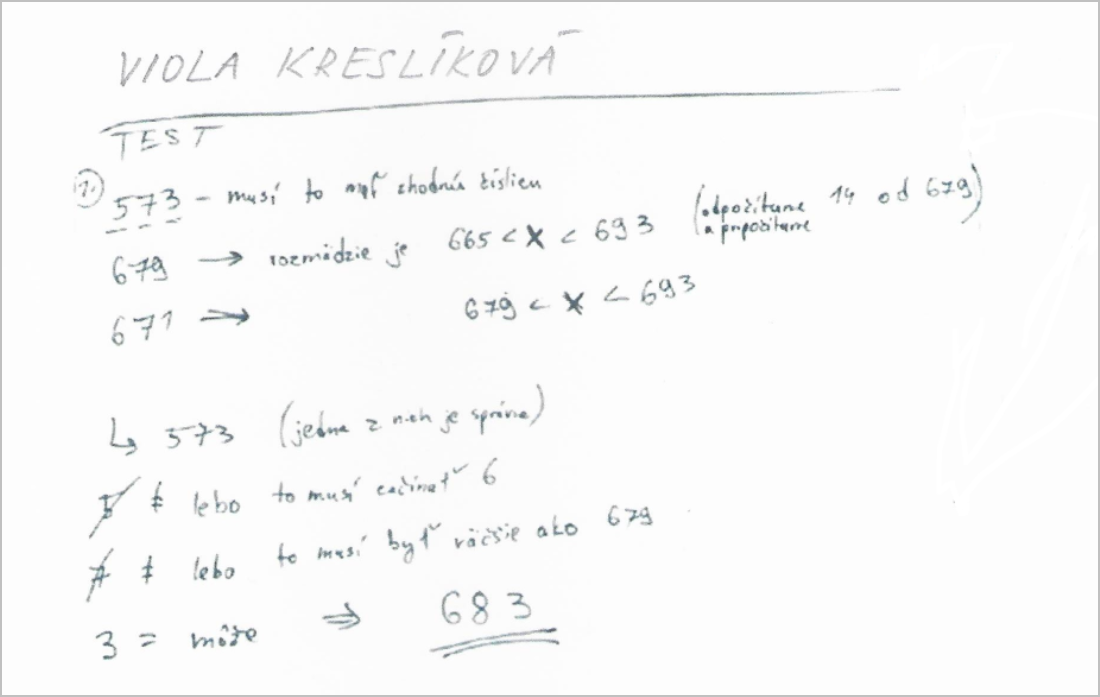 VIOLA KRESLÍKOVÁ
TEST
1. 573 - musí to mať zhodnú číslicu
679 → rozmädzie je 665 < X < 693 (odpočítame a pripočítame 14 od 679)
671 → 679 < X < 693
↳ 573 (jedna z nich je správna)
5 ≠ lebo to musí začínať 6
7 ≠ lebo to musí byť väčšie ako 679
3 = môže ⇒ 683